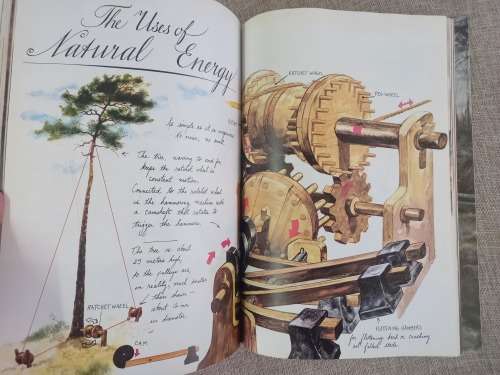 The Uses of
Natural Energy
So simple as it is ingenious
The tree, swaying to and fro
keeps the ratchet wheel in
constant motion.
Connected to the ratchet wheel
in the hammering machine with
a camshaft that rotates to
trigger the hammers.
The tree is about
25 meters high,
so the pulleys are,
in reality, much smaller
than shown
about 10 cm
in diameter
RATCHET WHEEL
CAM
RATCHET WHEEL
PEG-WHEEL
FLATTENING HAMMERS
for flattening